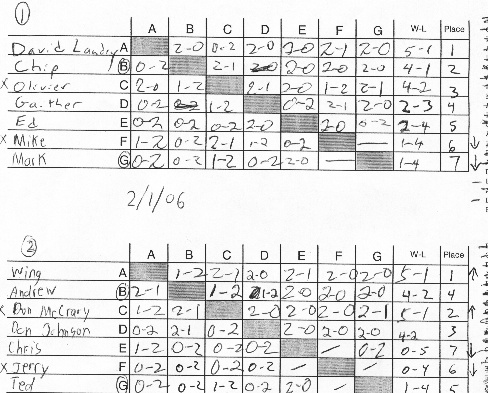 1
A B C D E F G W-L Place
David Landry A 2-0 0-2 2-0 2-0 2-1 2-0 5-1 1
Chip B 0-2 2-1 2-0 2-0 2-0 4-1 2
X Olivier C 2-0 1-2 2-1 2-0 1-2 2-1 4-2 3
Gaither D 0-2 1-2 0-2 2-1 2-0 2-3 4
Ed E 0-2 0-2 0-2 2-0 2-0 0-2 2-4 5
X Mike F 1-2 0-2 2-1 1-2 0-2 — 1-4 6 ↓
Mark G 0-2 0-2 1-2 0-2 2-0 — 1-4 7 ↓
2/1/06
2
A B C D E F G W-L Place
Wing A 1-2 2-1 2-0 2-1 2-0 2-0 5-1 1 ↑
Andrew B 2-1 1-2 1-2 2-0 2-0 2-0 4-2 4
X Don McCrary C 1-2 2-1 2-0 2-0 2-0 2-1 5-1 2 ↑
Don Johnson D 0-2 2-1 0-2 2-0 2-0 2-0 4-2 3
Chris E 1-2 0-2 0-2 0-2 — 0-2 0-5 7 ↓
X Jerry F 0-2 0-2 0-2 0-2 — — 0-4 6 ↓
Ted G 0-2 0-2 1-2 0-2 2-0 — 1-4 5